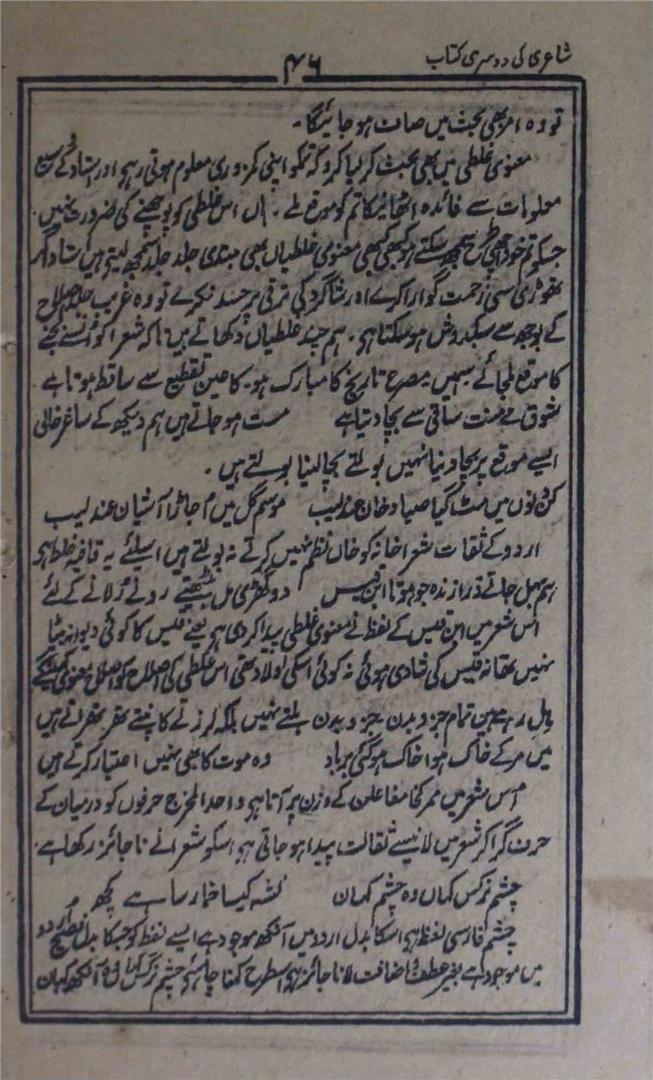 شاعری کی دوسری کتاب
۴۶
تو وہ امر بھی بحث میں صاف ہو جائیگا۔
معنوی غلطی میں بھی بحث کر لیا کرو کہ تمکو اپنی کمزوری معلوم ہوتی رہے اور استاد کے وسیع
معلومات سے فائدہ اٹھانیکا تم کو موقع ملے ۔ ہاں اس غلطی کو پوچھنے کی ضرورت نہیں
جسکو تم خود اچھی طرح سمجھ سکتے ہو کبھی کبھی معنوی غلطیاں بھی مبتدی جلد جلد سمجھ لیتے ہیں استاد اگر
تھوڑی سی زحمت گوارا کرے اور شاگرد کی ترقی پر حسد نکرے تو وہ غریب جلد اصلاح
کے بوجھ سے سبکدوش ہو سکتا ہے ۔ ہم چند غلطیاں دکھاتے ہیں تاکہ شعرا کو اُنسے بچنے
کا موقع ملجائے سہیں مصرع تاریخ کا مبارک ہو ۔ کا عین تقطیع سے ساقط ہوتا ہے
شوق مے منت ساقی سے بچا دیتا ہے مست ہو جاتے ہیں ہم دیکھ کے ساغر خالی
ایسے موقع پر بچا دینا نہیں بولتے بچالینا بولتے ہیں ۔
کن دنوں میں مٹ گیا صیاد خان عندلیب موسم گل میں اجاڑا آشیان عندلیب
اردو کے ثقات شعرا خانہ کو خاں نظم نہیں کرتے نہ بولتے ہیں اسلئے یہ قافیہ غلط ہے
ہم بہل جاتے ذرا زندہ جو ہوتا ابن قیس دو گھڑی مل بیٹھتے رونے رُلانے کے لئے
اس شعر میں ابن قیس کے لفظ نے معنوی غلطی پیدا کردی ہے یعنے قیس کا کوئی دیوانہ بیٹا
نہیں تھا نہ قیس کی شادی ہوئی نہ کوئی اسکی اولاد تھی اس غلطی کی اصلاح کو اصلاح معنوی کہینگے
ہل رہے ہیں تمام جزو بدن جزو بدن ہلتے نہیں بلکہ لرزتے کانپتے تھر تھراتے ہیں
میں مر کے خاک ہوا خاک ہو گئی برباد وہ موت کا بھی نہیں اعتبار کرتے ہیں
اُس شعر میں ممرکخا مفاعلن کے وزن پر آتا ہے واحد المخرج حرفوں کو درمیان کے
حرف گرا کر شعر میں لانیسے ثقالت پیدا ہو جاتی ہے اسکو شعرا نے ناجائز رکھا ہے
چشم نرگس کہاں وہ چشم کہاں نشہ کیسا خمار سا ہے کچھ
چشم فارسی لفظ ہے اسکا بدل اردو میں آنکھ موجود ہے ایسے لفظ کو جسکا بدل فصیح اردو
میں موجود ہے بغیر عطف و اضافت لانا جائز نہیں اسطرح کہنا چاہئے چشم نرگس کہاں وہ آنکھ کہاں